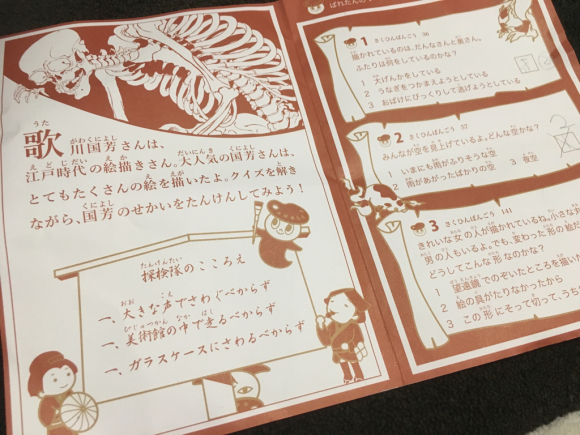 歌川国芳さんは、
江戸時代の絵描きさん。大人気の国芳さんは、
とてもたくさんの絵を描いたよ。クイズを解き
ながら、国芳のせかいをたんけんしてみよう!
探検隊のこころえ
一、大きな声でさわぐべからず
一、美術館の中で走るべからず
一、ガラスケースにさわるべからず
1 さくひんばんごう 36
描かれているのは、だんなさんと奥さん。
ふたりは何をしているのかな?
1 大げんかをしている
2 うなぎをつかまえようとしている
3 おばけにびっくりして逃げようとしている
2 さくひんばんごう 57
みんなが空を見上げているよ。どんな空かな?
1 いまにも雨がふりそうな空
2 雨があがったばかりの空 3 夜空
3 さくひんばんごう 141
きれいな女の人が描かれているね。小さな
男の人もいるよ。でも、変わった形の絵だ
どうしてこんな形なのかな?
1 望遠鏡でのぞいたところを描い
2 絵の具がたりなかったから
3 この形にそって切って、うち